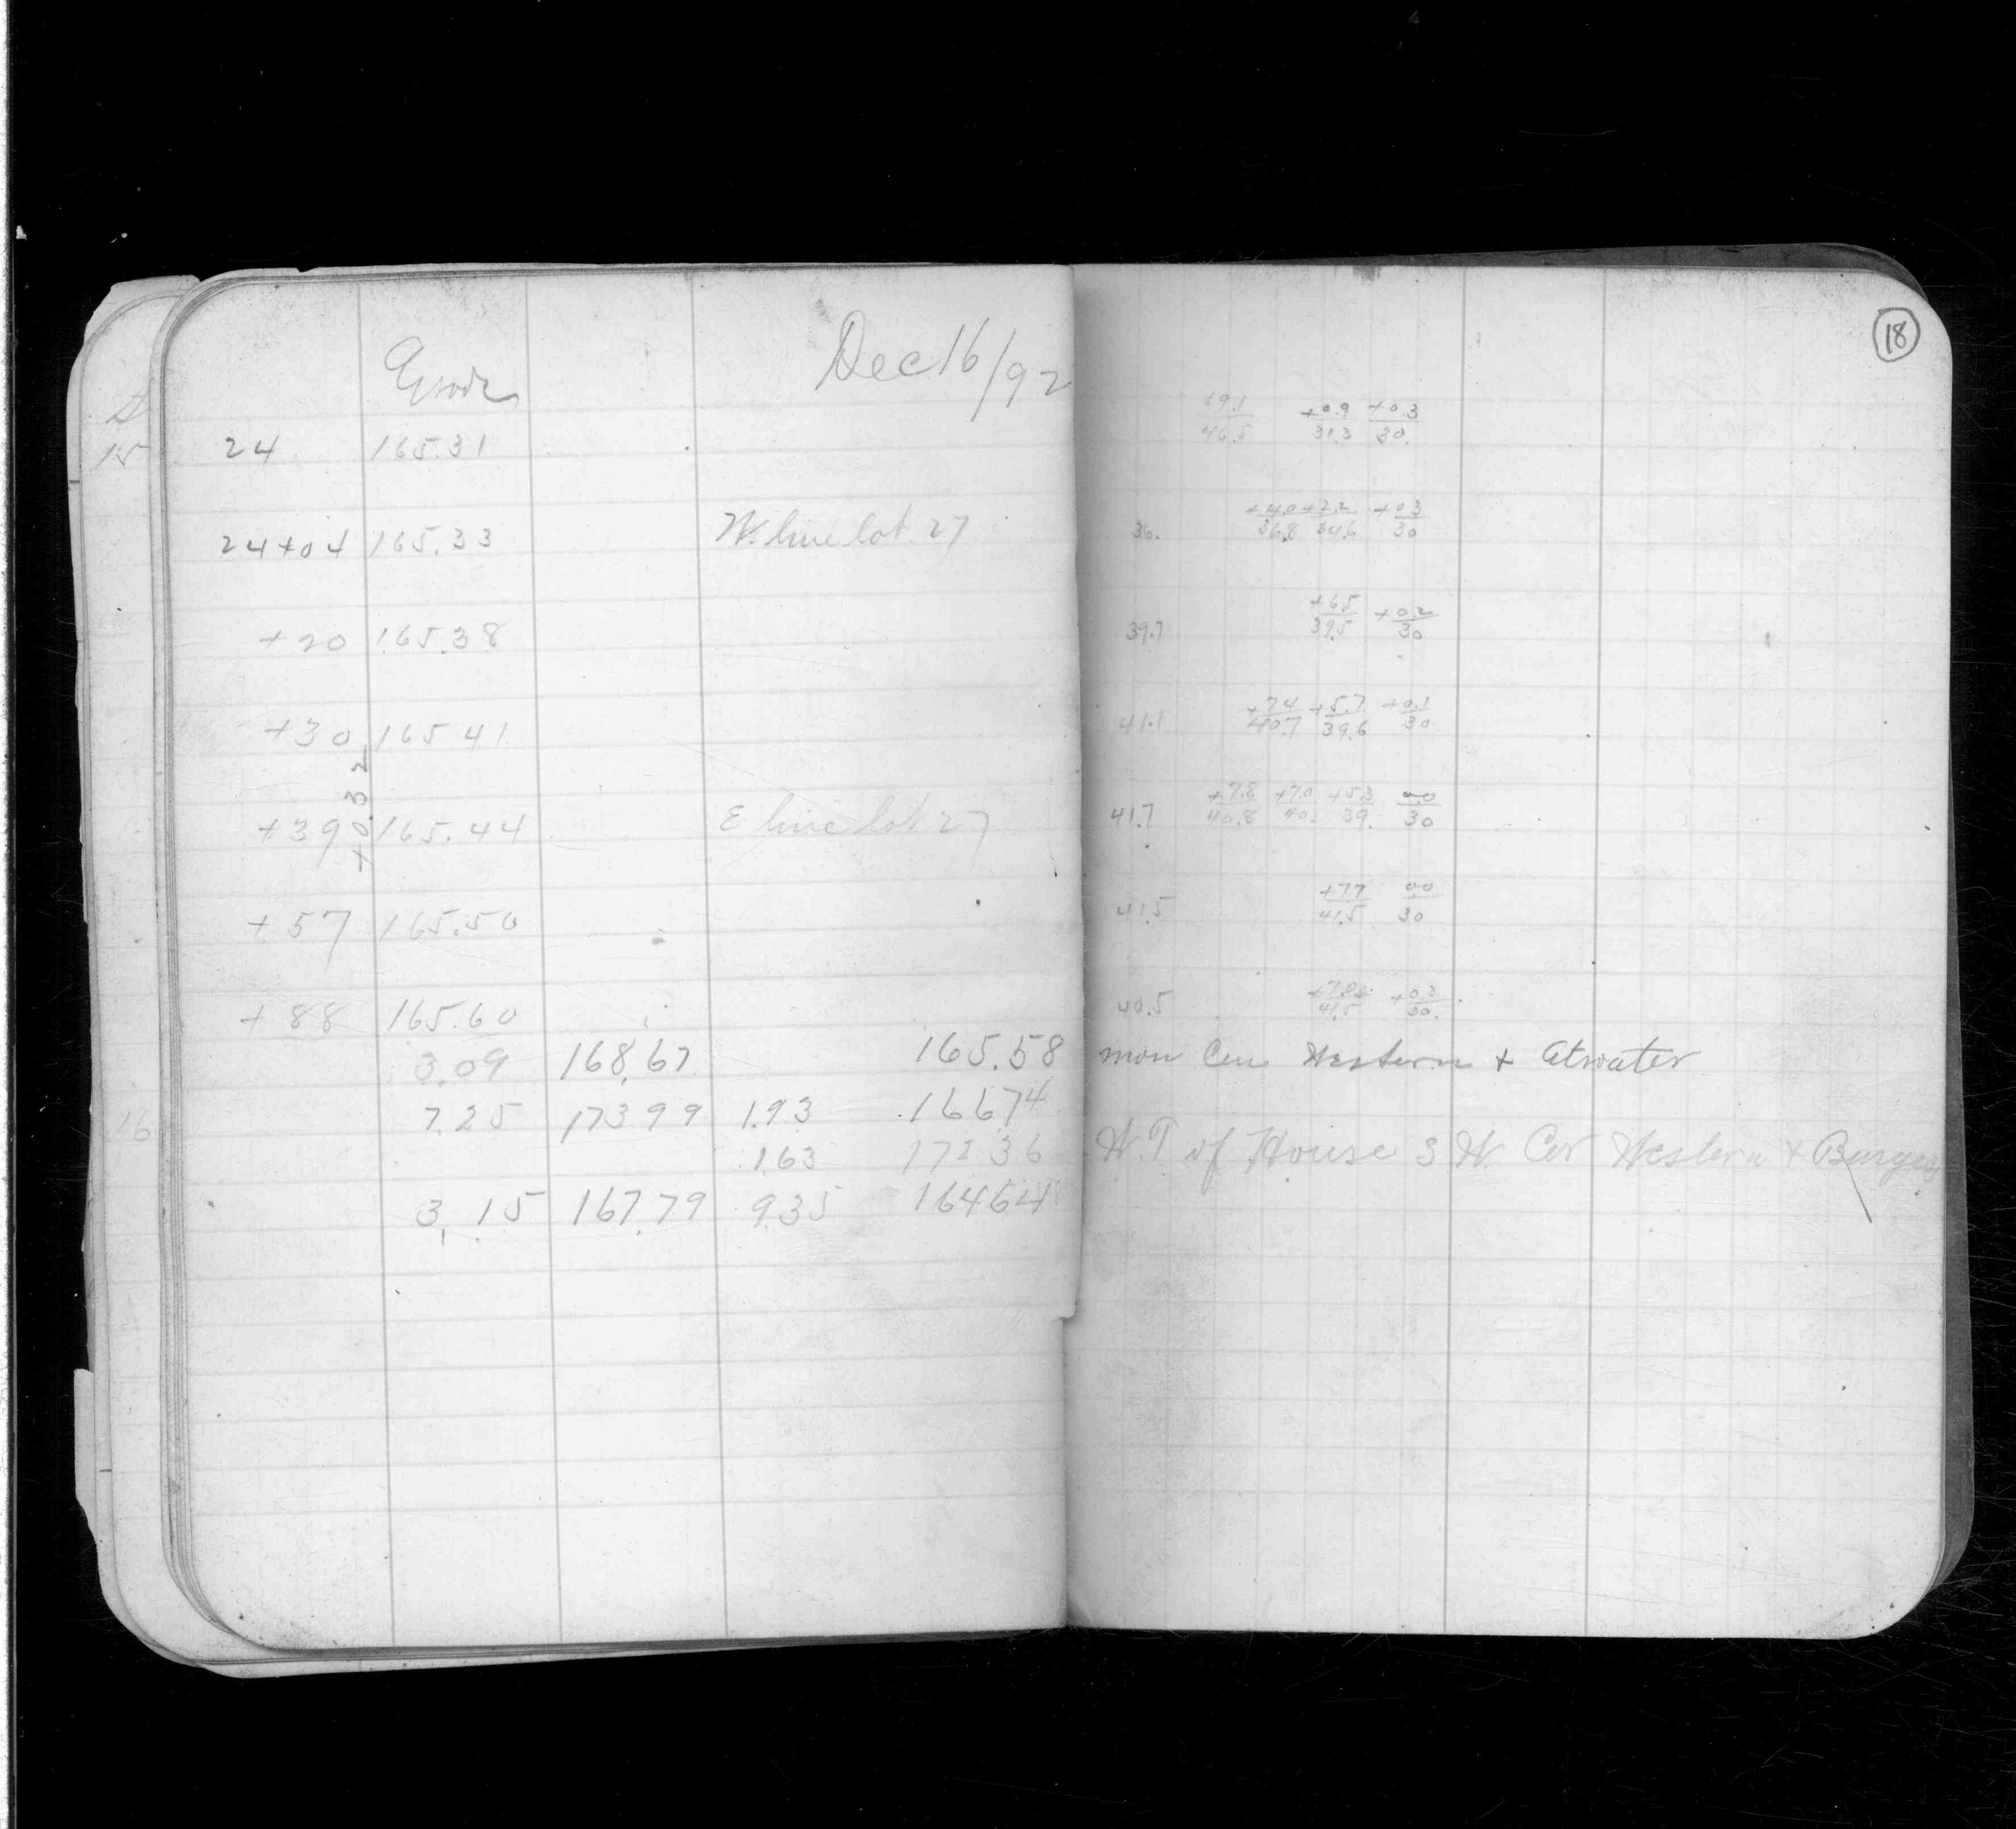 18
Grade Dec 16/92
24 165.31 49.1/46.5 +0.9/31.3 +0.3/30.
24+04 165.33 W. line lot 27 36. +4.0/36.8 +2.2/34.6 +0.3/30
+20 165.38 39.7 +6.5/39.5 +0.2/30
+30 165.41 41.1 +7.4/40.7 +5.7/39.6 +0.1/30
+0.32
+39 165.44 E line lot 27 41.7 +7.8/40.8 +7.0/40. +5.3/39. 0.0/30
+57 165.50 41.5 +7.7/41.5 00/30
+88 165.60 40.5 41.5 30.
3.09 168.67 165.58 mon Cen Western + Atwater
7.25 173 99 1.93 166 74
1.63 172 36 W.T of House S W. Cor Western + Burgess
3.15 167.79 9.35 164 64
15
16